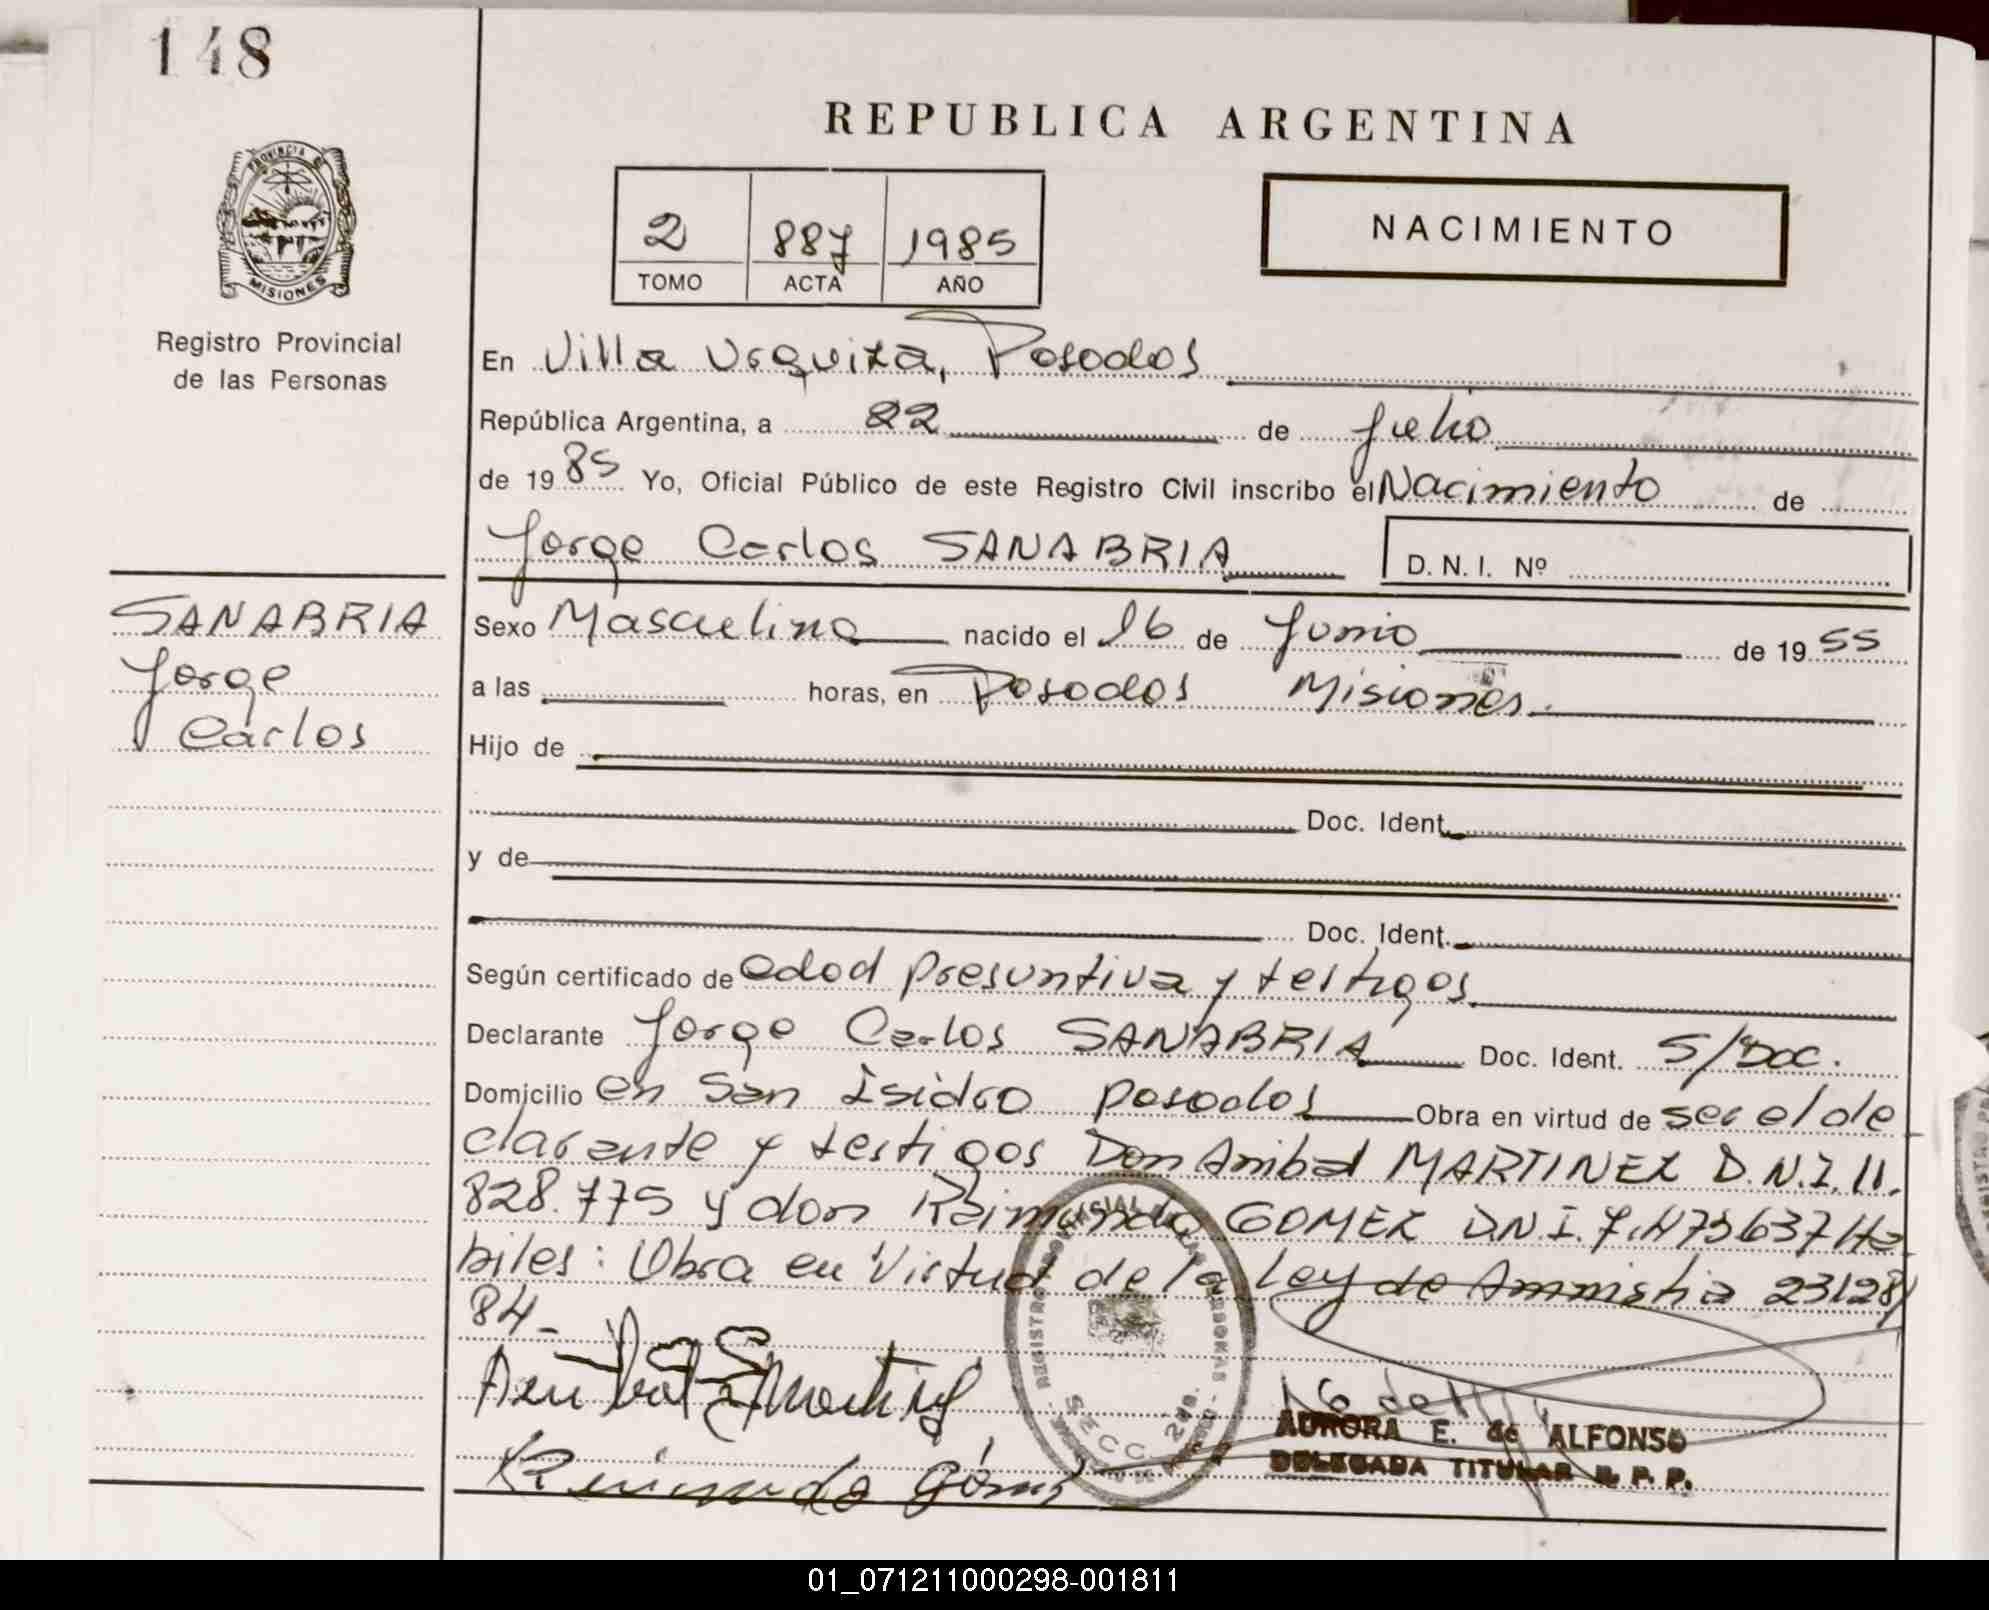 148
REPUBLICA ARGENTINA
PROVINCIA DE
MISIONES
2 887 1985
TOMO ACTA AÑO
NACIMIENTO
Registro Provincial
de las Personas
En Villa Urquiza, Posadas
República Argentina, a 22 de Julio
de 19 85 Yo, Oficial Público de este Registro Civil inscribo el Nacimiento de
Jorge Carlos SANABRIA D. N. I. Nº
SANABRIA
Jorge
Carlos
Sexo Masculino nacido el 16 de Junio de 19 55
a las horas, en Posadas Misiones.
Hijo de
Doc. Ident.
y de
Doc. Ident.
Según certificado de edad presuntiva y testigos
Declarante Jorge Carlos SANABRIA Doc. Ident. S/Doc.
Domicilio en San Isidro posadas Obra en virtud de ser el de
clarante y testigos Don Anibal MARTINEZ D.N.I. 11.
828.775 y don Raimundo GOMEZ D.N.I. 7.475637 Há
biles: Obra en Virtud de la Ley de Amnistia 23128/
84-
Raimundo Gómez
SECC. 2da.
AURORA E. de ALFONSO
DELEGADA TITULAR R. P. P.
01_071211000298-001811